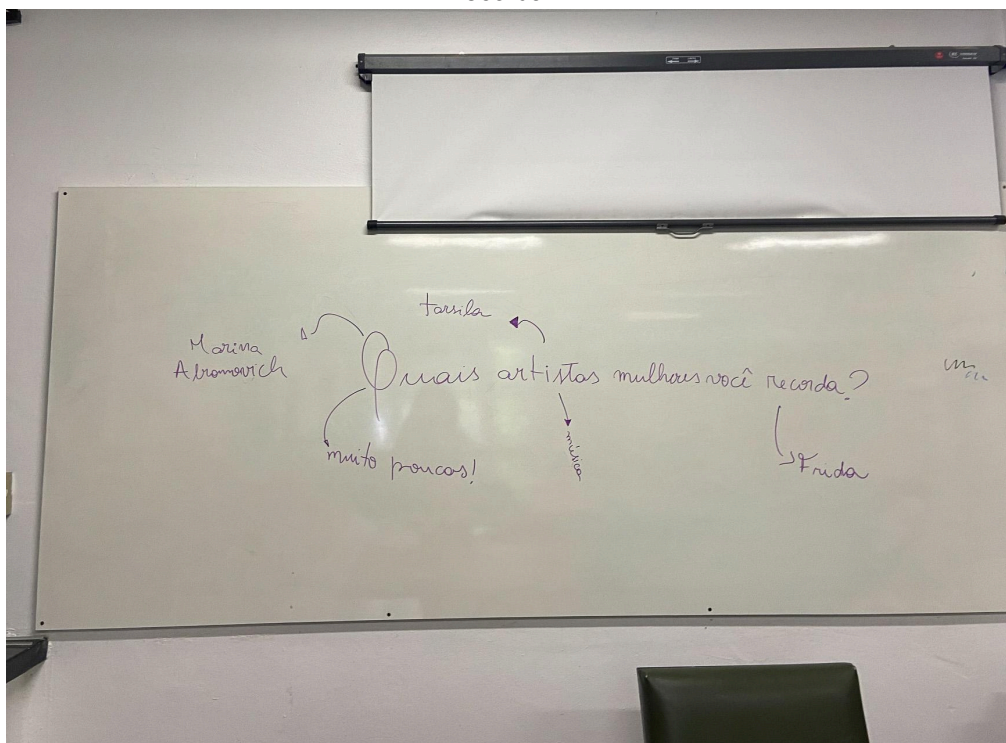 tarsila
Marina
Abramovich
Quais artistas mulheres você recorda?
muito poucas!
música
Frida